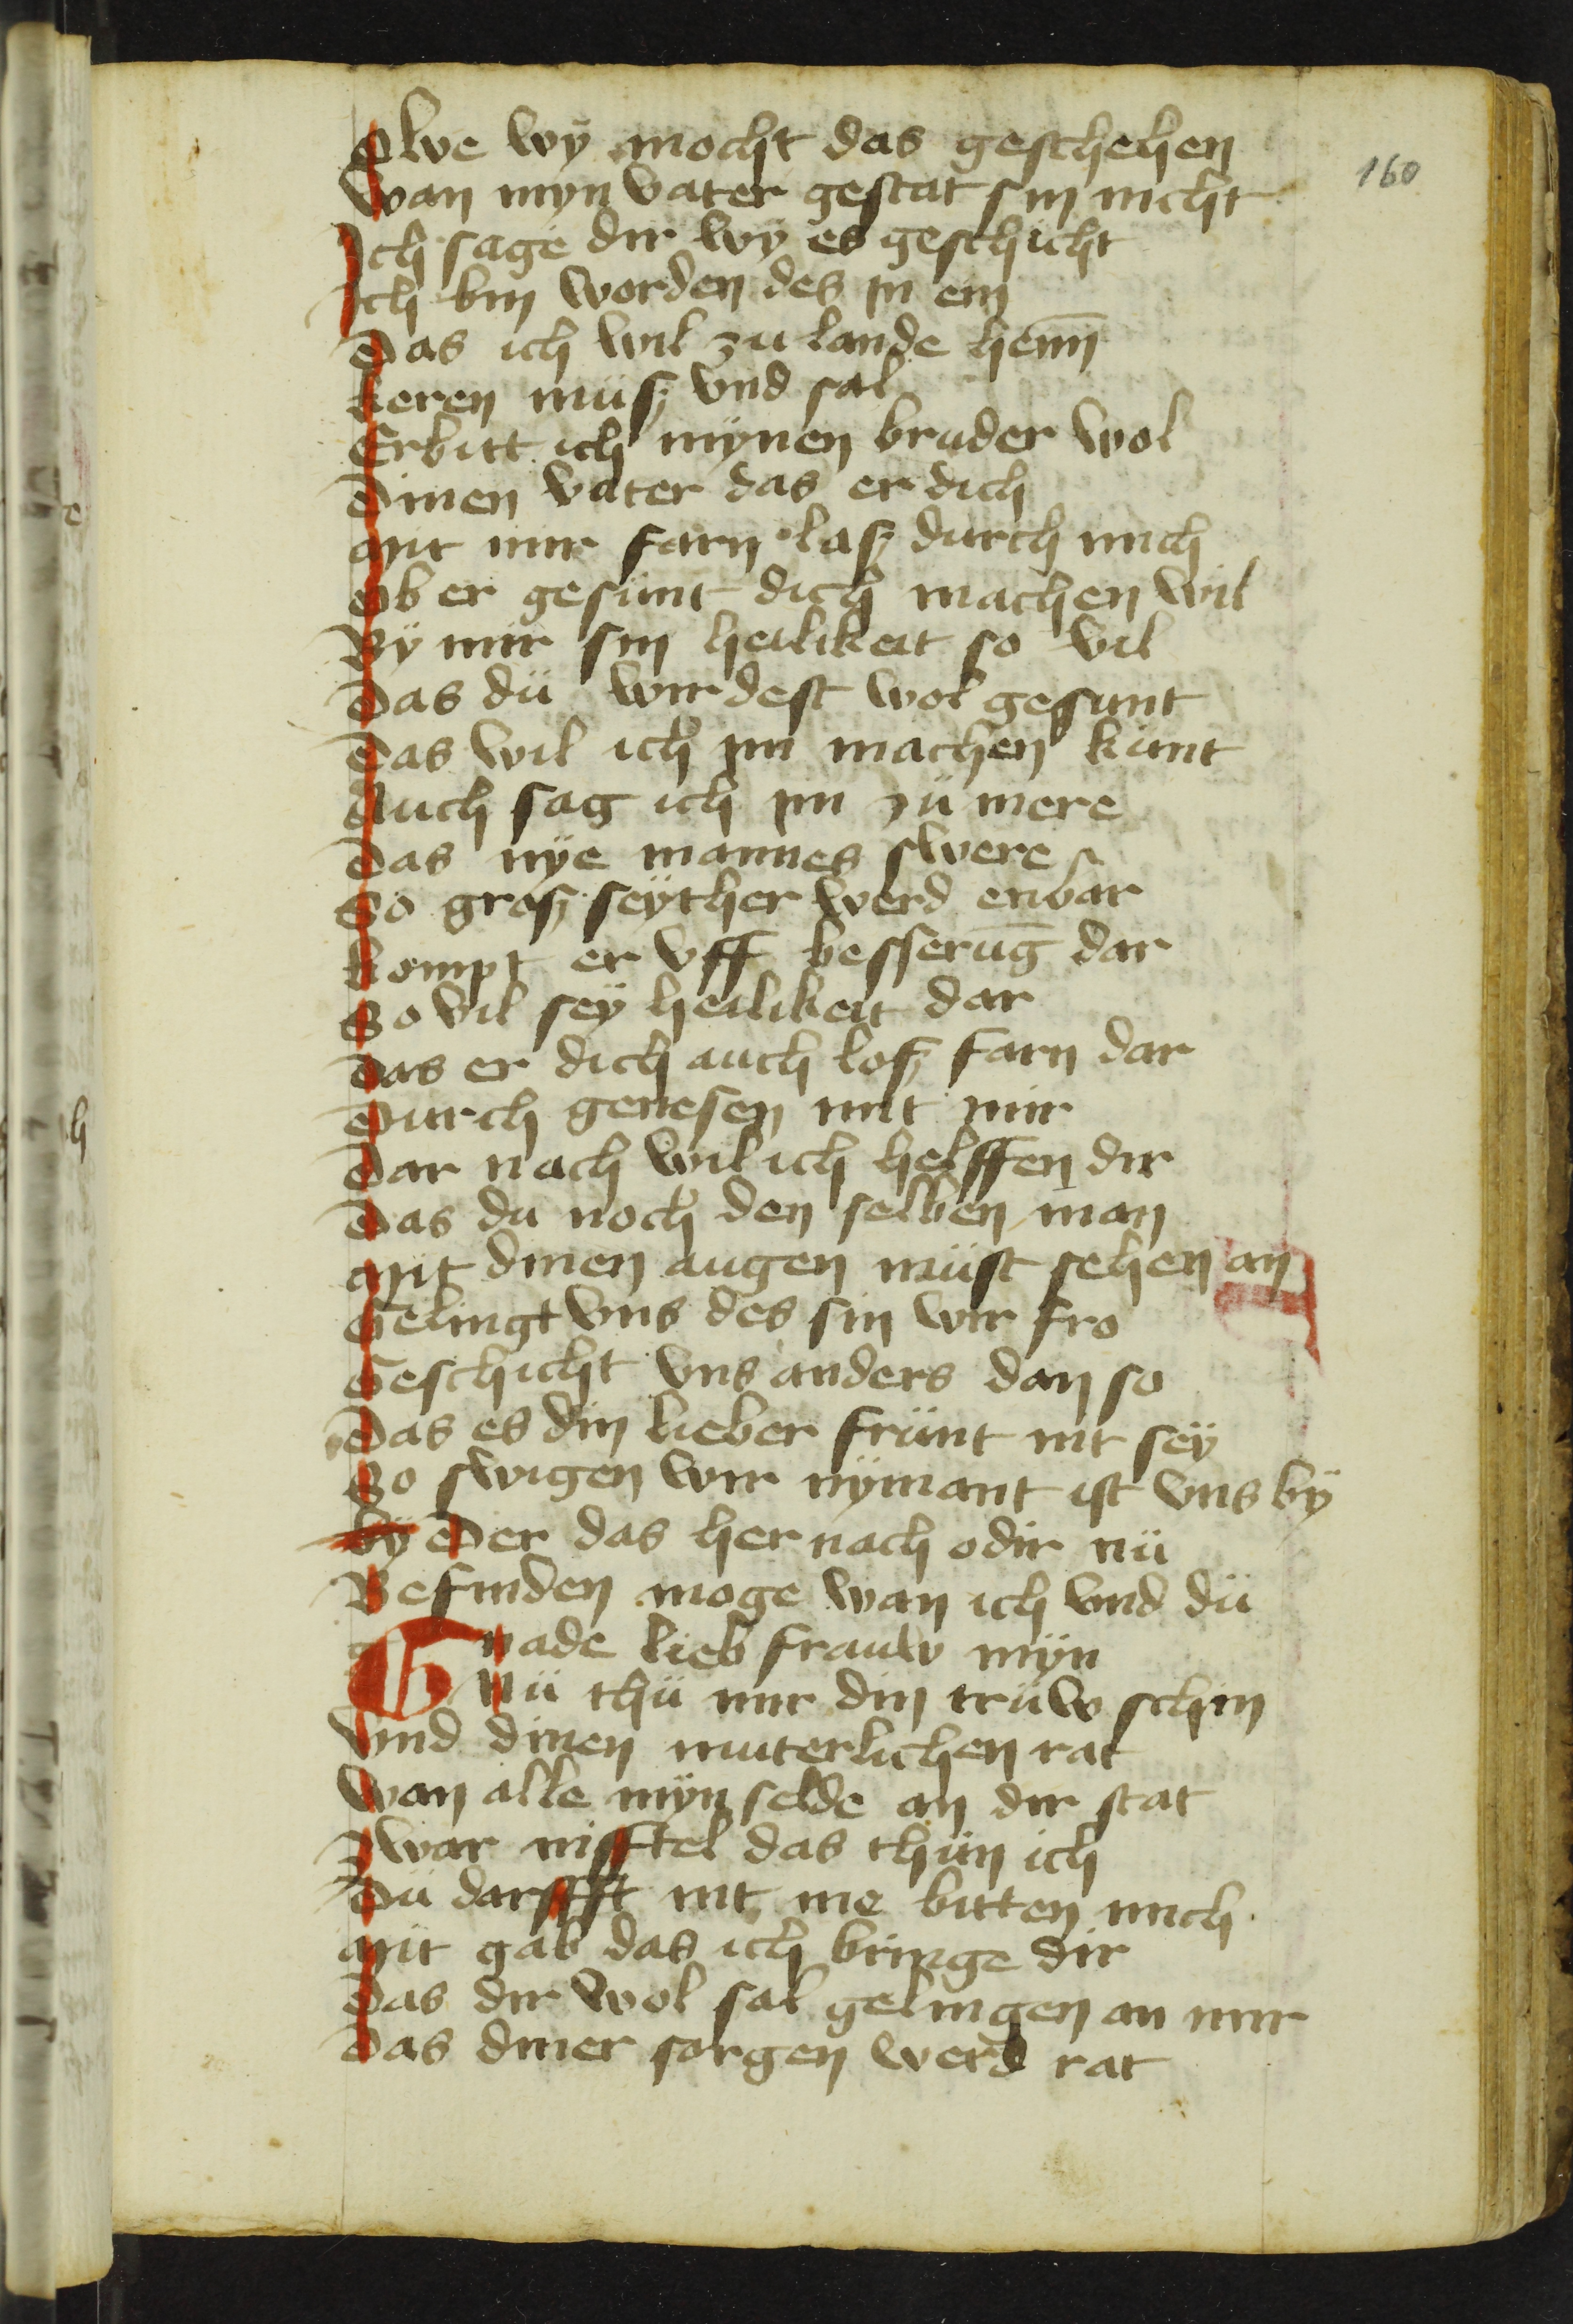 160
Owe wÿ mocht das geschehen
Wan mÿn vater gestat sin nicht
Ich sage dir wÿ es geschicht
Ich bin worden des in ein
Das ich wil zu lande hein̄
keren müsz vnd sal
Erbitt ich mÿnen bruder wol
Dinen vater das er dich
Mit mir farn lasz durch mich
Ob er gesunt dich machen wil
Bÿ mir sin heilikeit so vil
Das dü wirdest wol gesunt
Das wil ich im machen kunt
Auch sag ich im zü mere
Das nÿe mannes swere
So grosz seÿther werd enbar
kompt er vff besserūg dar
So vil seÿ heilikeit dar
Das er dich auch losz farn dar
Durch genesen mit mir
Dar nach wil ich helffen dir
Das du noch den selben man
Mit dinen augen müst sehen an
Gelingt vns des sin wir fro
Geschicht vns anders dan so
Das es din lieber frünt nit seÿ
So swigen wir nÿmant ist vns bÿ
bÿ Der das her nach odir nü
Befinden moge wan ich vnd dü
Gnade lieb frauw mÿn
Nü thü mir din trüw schin
Vnd dinen muterlichen rat
Wan alle mÿn selde an dir stat
Zwar nifftel das thün ich
Du darffft nit me bitten mich
Mit gab das ich bringe dir
Das dir wol sal gelingen an mir
Das diner sorgen werd rat